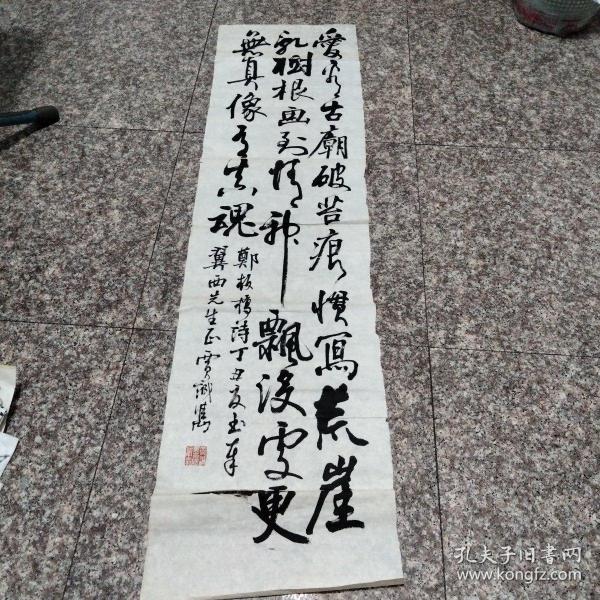 愛看古廟破苔痕慣寫荒崖
亂樹根画到情神飄没處更
無真像有真魂
鄭板橋詩丁丑夏書奉
冀西先生正賈
孔夫子旧书网
www.kongfz.com